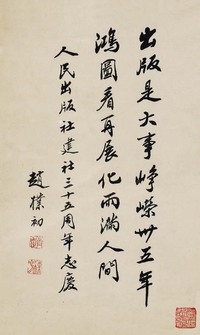 出版是大事峥嵘卅五年
鴻圖看再展化雨满人間
人民出版社建社三十五周年志慶
趙樸初